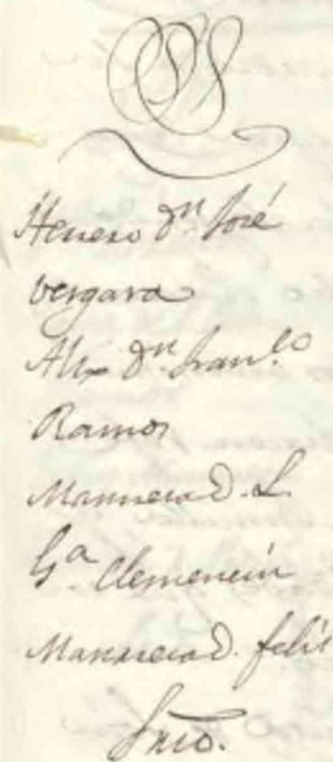 SS
Henero Dn José
Vergara
Alix Dn. Franco
Ramos
Manresa D. L.
Ga. Clemencin
Manresa D. felis
Srio.